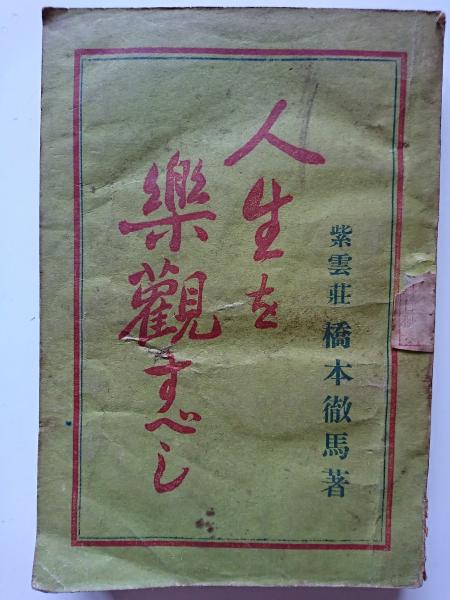 紫雲荘 橋本徹馬著
人生を
樂觀すべし